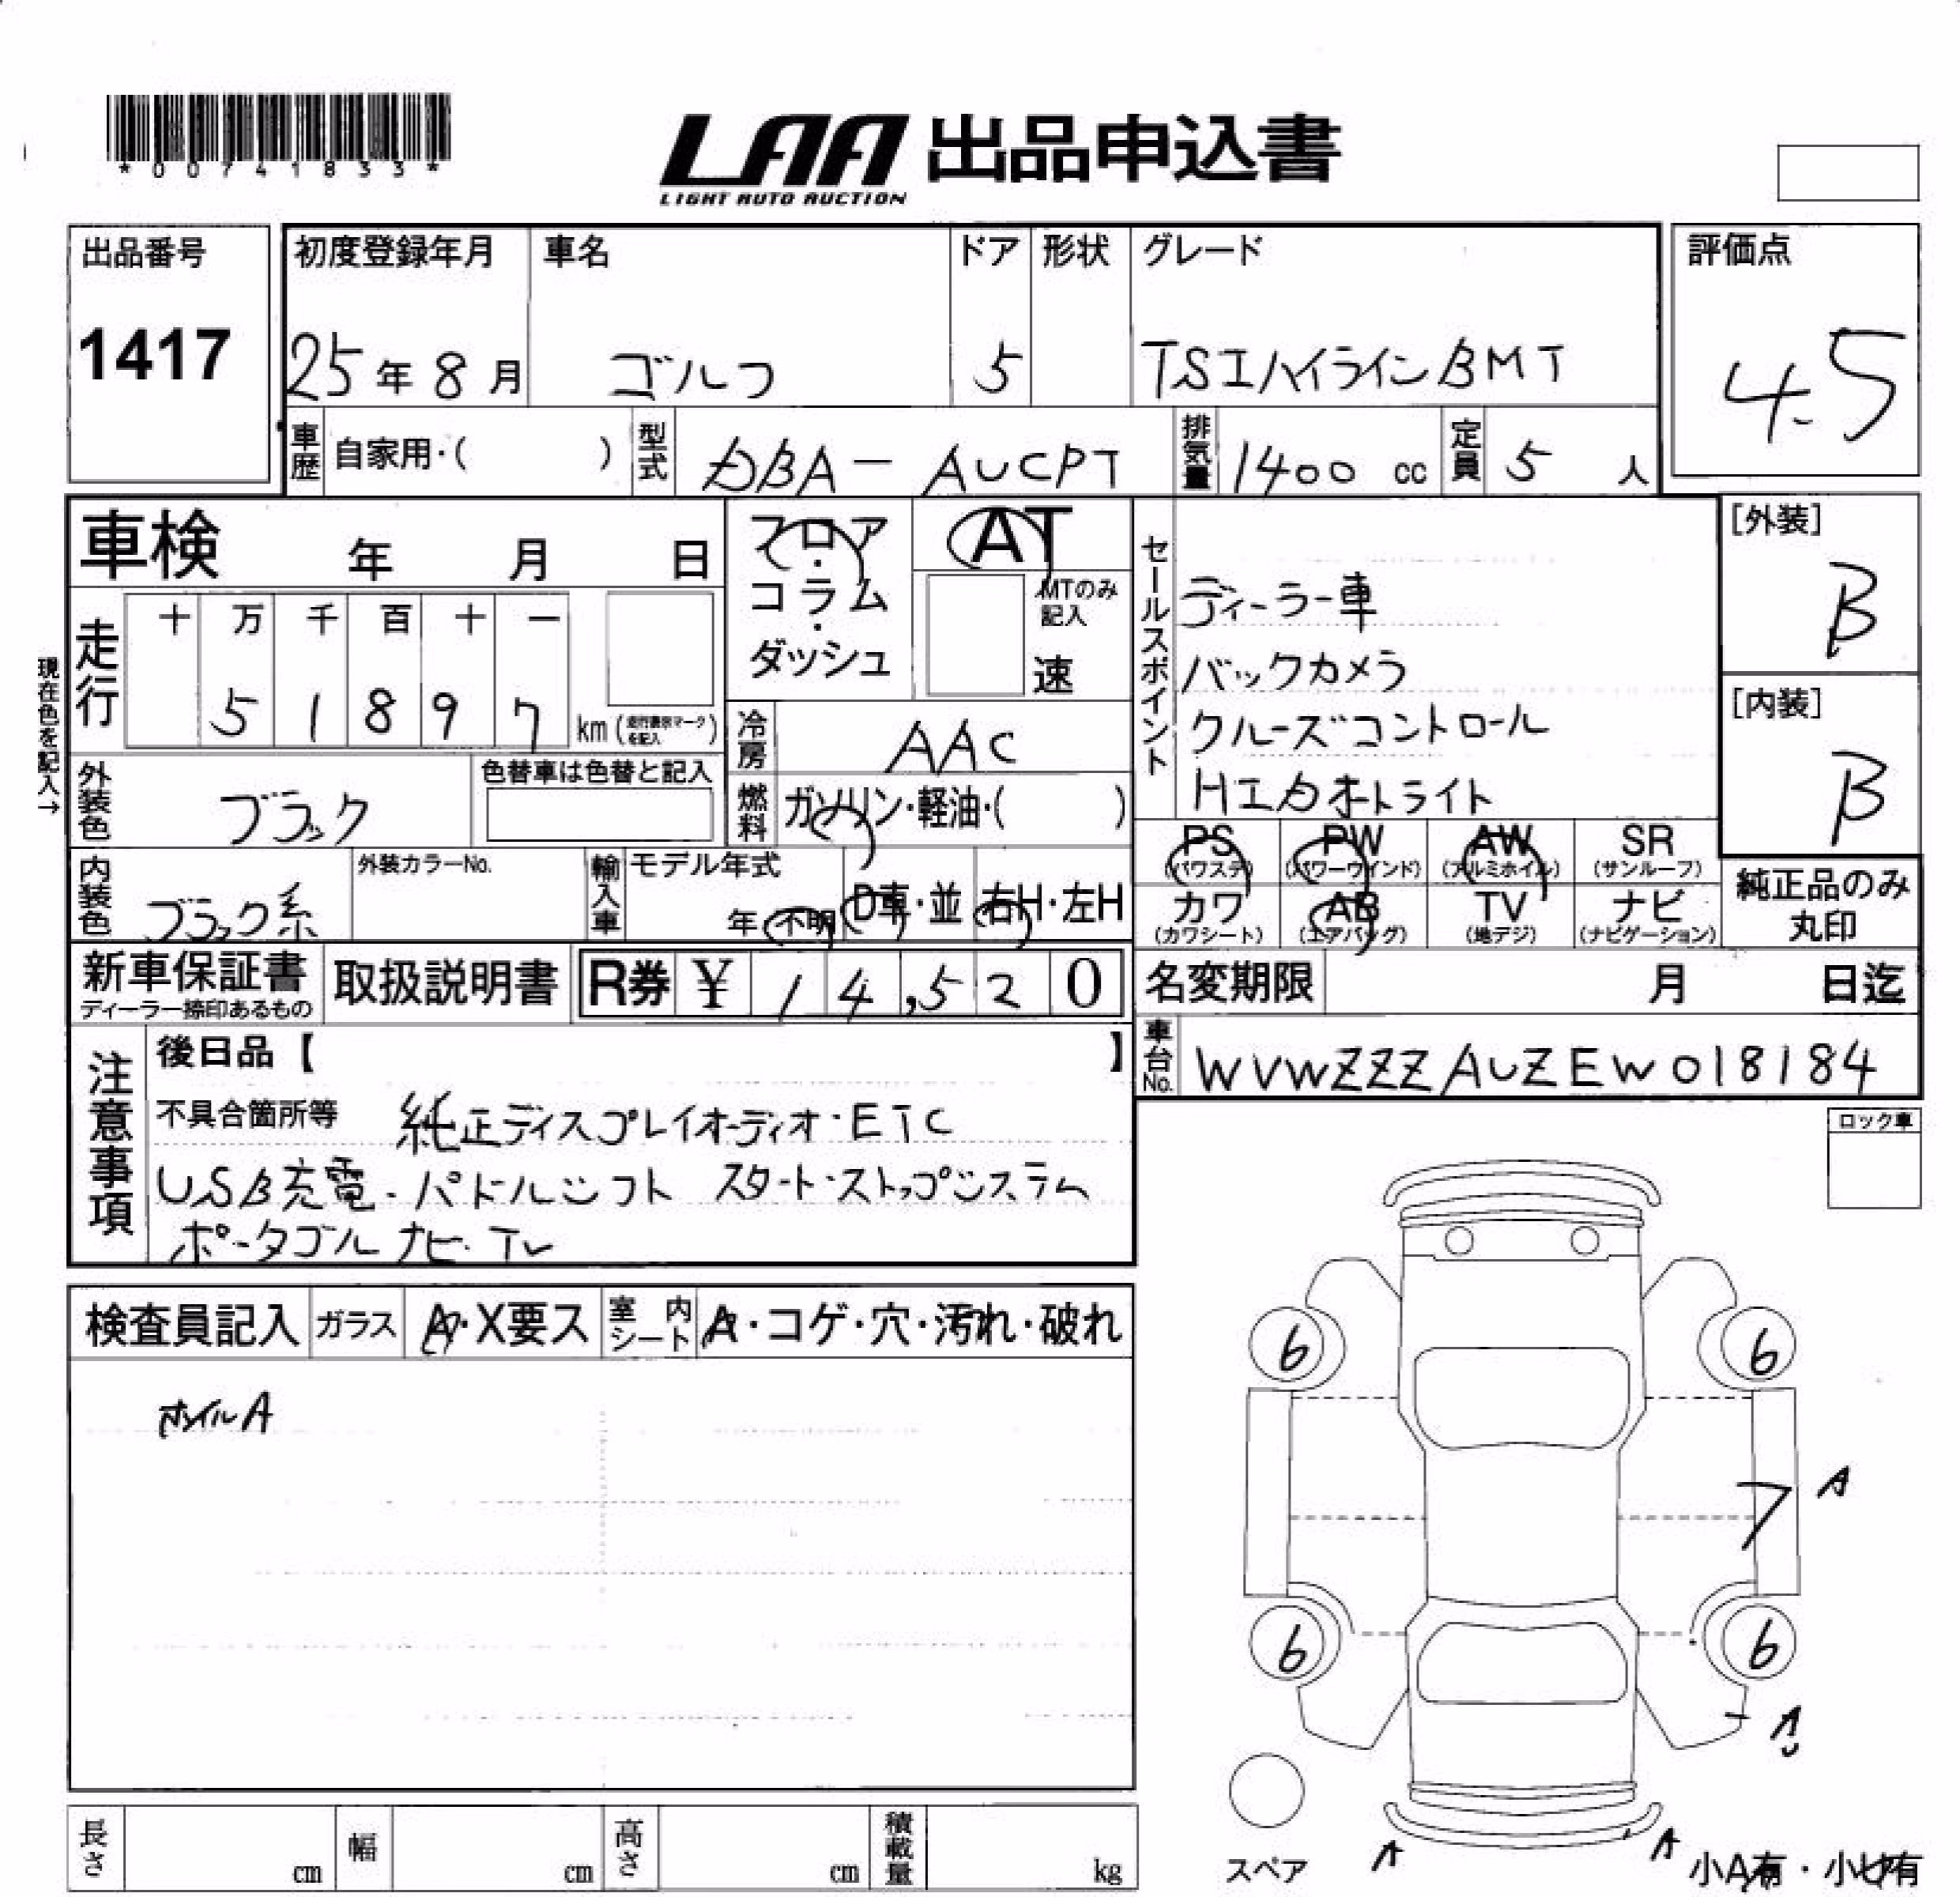 *00741833*
LAA 出品申込書
LIGHT AUTO AUCTION
出品番号 初度登録年月 車名 ドア 形状 グレード 評価点
1417 25年8月 ゴルフ 5 TSIハイラインBMT 4.5
車歴 自家用・( ) 型式 DBA-AUCPT 排気量 1400 cc 定員 5 人
車検 年 月 日 フロア・コラム・ダッシュ AT
MTのみ記入 速
現在色を記入→
走行 十 万 千 百 十 一
5 1 8 9 7 km (走行表示マークを記入)
冷房 AAC
外装色 ブラック 色替車は色替と記入
燃料 ガソリン・軽油・( )
内装色 ブラック系 外装カラーNo. 輸入車 モデル年式 年・不明 D車・並 右H・左H
セールスポイント
ディーラー車
バックカメラ
クルーズコントロール
HIDオートライト
[外装] B
[内装] B
PS (パワステ) PW (パワーウインド) AW (アルミホイル) SR (サンルーフ)
カワ (カワシート) AB (エアバッグ) TV (地デジ) ナビ (ナビゲーション)
純正品のみ丸印
新車保証書 ディーラー捺印あるもの 取扱説明書 R券 ¥ 14,520
名変期限 月 日迄
車台No. WVWZZZAUZEW018184
注意事項
後日品【 】
不具合箇所等 純正ディスプレイオーディオ・ETC
USB充電・パドルシフト スタート・ストップシステム
ポータブルナビ・TV
ロック車
検査員記入 ガラス A・X要ス 室内シート A・コゲ・穴・汚れ・破れ
ホイルA
6 6
A
7
6 6
A
A A
スペア 小A有・小U有
長さ cm 幅 cm 高さ cm 積載量 kg